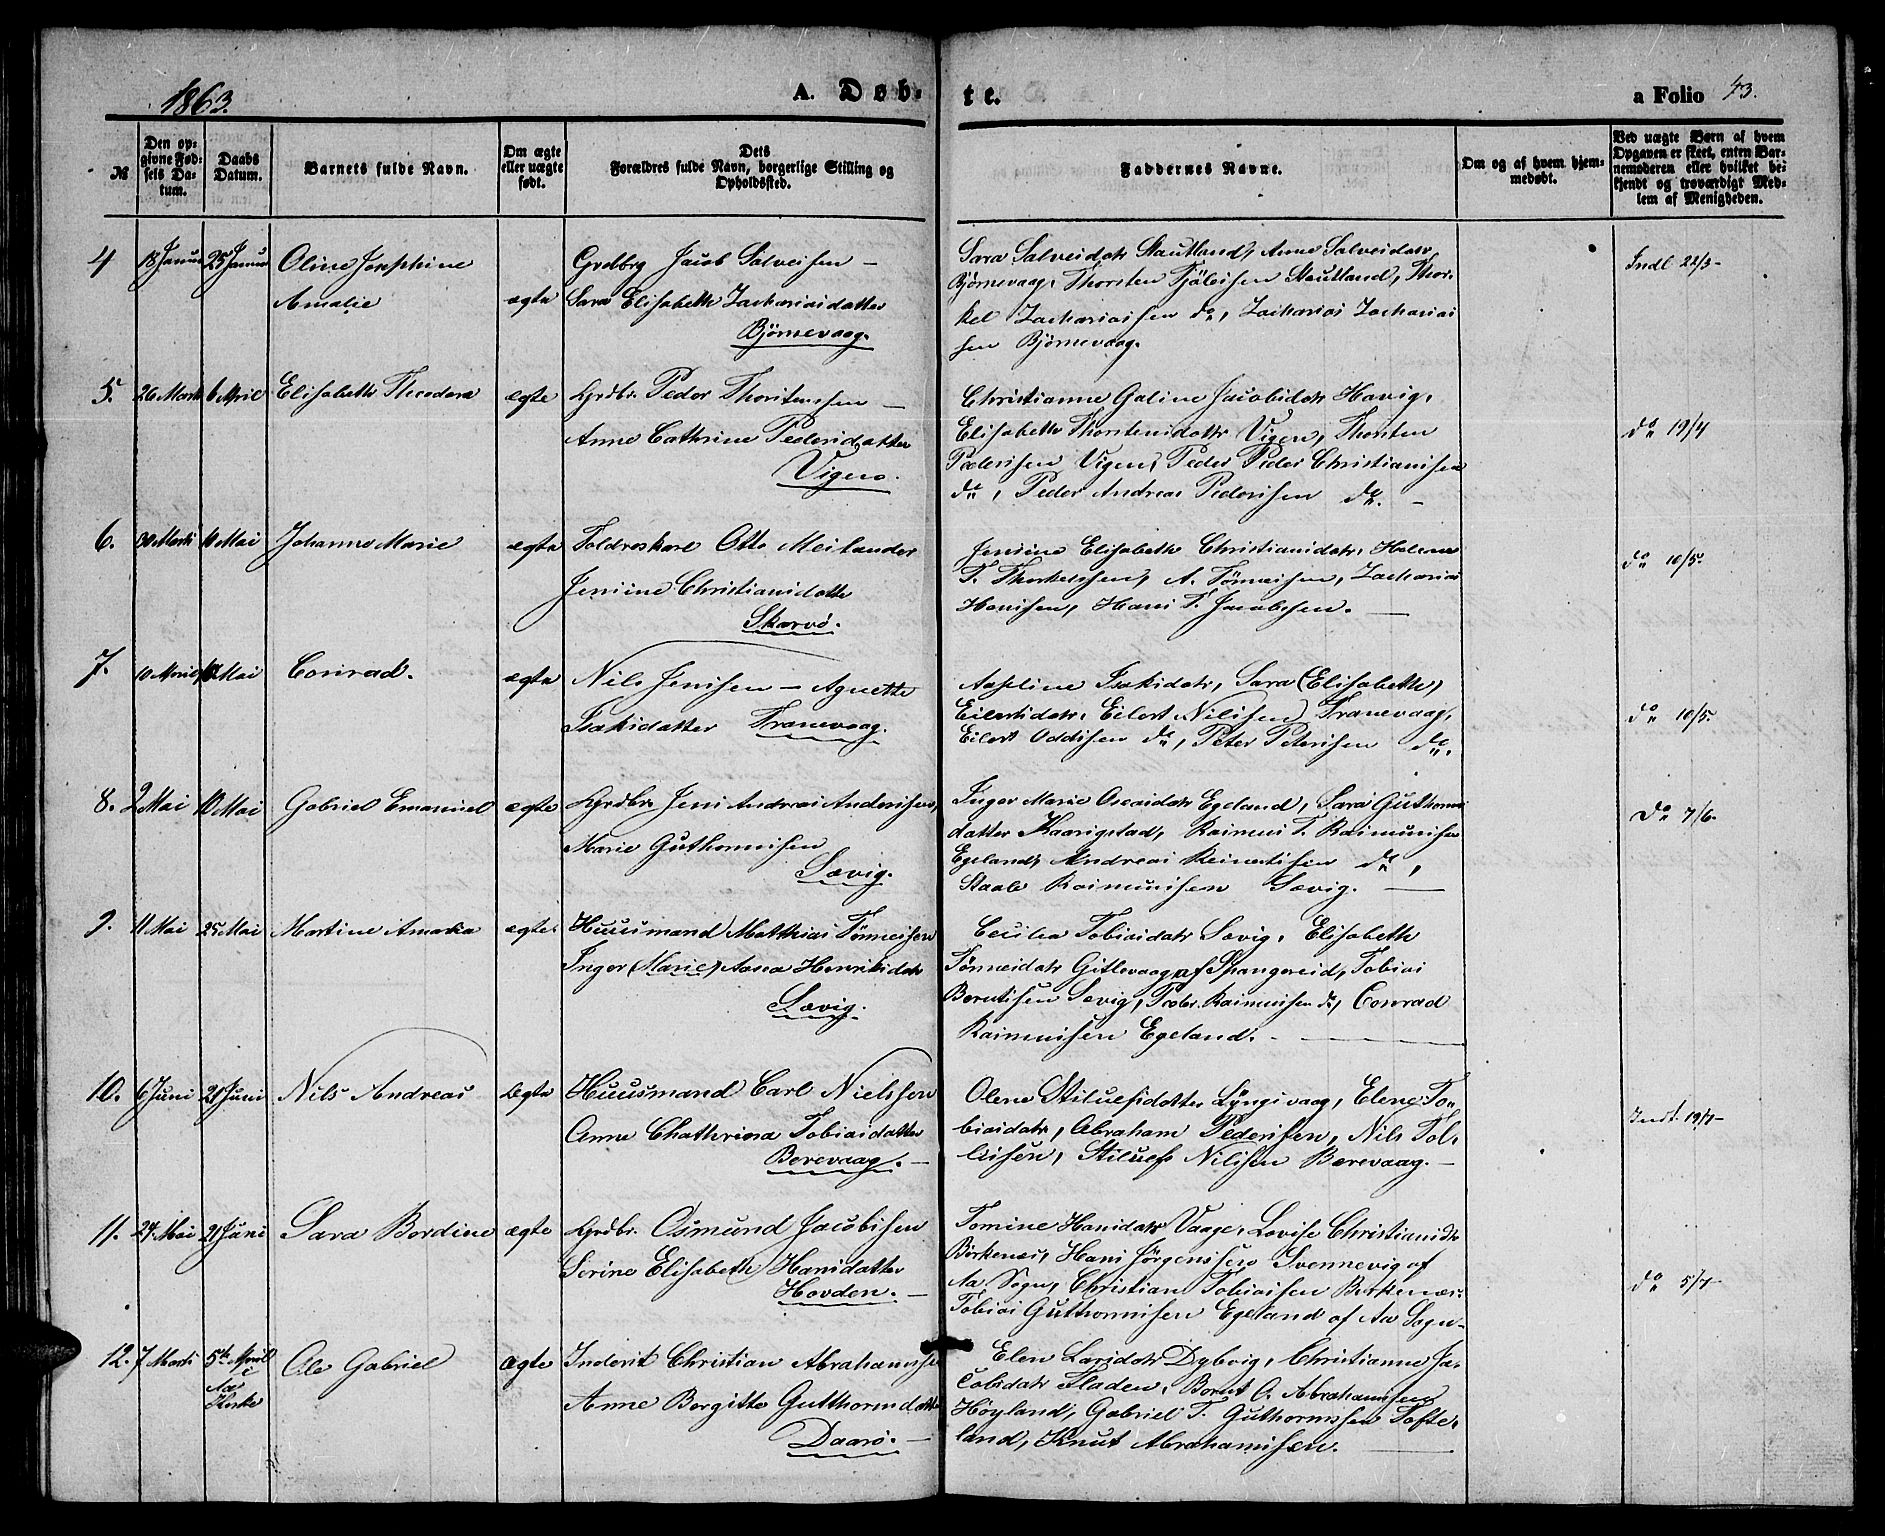 1863.
A. Døb-
te.
a Folio 43.
№
Den op-
givne Fød-
sels Da-
tum.
Daabs
Datum.
Barnets fulde Navn.
Om ægte
eller uægte
født.
Dets
Forældres fulde Navn, borgerlige Stilling og
Opholdssted.
Faddernes Navne.
Om og af hvem hjem-
medøbt.
Ved uægte Børn af hvem
Opgaven er skeet, enten Bar-
nemoderen eller hvilket be-
kjendt og troværdigt Med-
lem af Menigheden.
4 18 Januar 25 Januar Oline Josephine
Amalie
ægte
Grdbrg Jacob Salvesen –
Sara Elisabeth Zachariasdatter
Bjørnevaag.
Sara Salvesdatr Stautland, Anne Salvesdatr
Bjørnevaag, Thorsten Fjøleisen Stautland, Thor-
kel Zachariassen do, Zacharias Zacharias
sen Bjørnevaag.
Indl 22/3 –
5. 26 Marts 6 April Elisabeth Theodora
ægte
Grdbr. Peder Thorstensen –
Anne Cathrine Pedersdatter
Vigen.
Christianne Galine Jacobsdatr Havig,
Elisabeth Thorstensdatr Vigen, Thorsten
Pedersen Vigen, Peder Peder Christiansen
do, Peder Andreas Pedersen do. –
do 19/4
6. 30 Marts 10 Mai Johanne Marie
ægte
Toldroskarl Otto Meilander
Jensine Christiansdatter
Skarvø.
Jensine Elisabeth Christiansdatr, Helene
T. Thorkelssen, A. Tønnesen, Zacharias
Hansen, Hans T. Jacobsen. –
do 10/5
7. 10 April 10 Mai Conrad.
ægte
Nils Jensen – Agnethe
Isaksdatter Tranevaag.
Aaseline Isaksdatr, Sara (Elisabeth)
Eilertsdatr, Eilert Nilsen Tranevaag,
Eilert Oddsen do, Peter Petersen do.
do 10/5.
8. 2 Mai 10 Mai Gabriel Emanuel
ægte
Grdbr. Jens Andreas Andersen,
Marie Guthormsen
Sævig.
Inger Marie Oseasdatr Egeland, Sara Guthorms
datter Kaarigstad, Raimun T. Raimunsen
Egeland, Andreas Reinertsen do,
Staale Raimunsen Sævig. –
do 7/6.
9. 11 Mai 25 Mai Martine Amalia
ægte
Huusmand Matthias Tønnesen
Inger (Marie) Aasea Henriksdatr
Sævig.
Cecilia Tobiasdatr Sævig, Elisabeth
Tønnesdatr Gitlevaag af Spangereid, Tobias
Berntsen Sevig, Peder Raimunsen do, Conrad
Raimunsen Egeland. –
10. 6 Juni 21 Juni Nils Andreas
ægte
Huusmand Carl Nielssen
Anne Chathrina Tobiasdatter
Berevaag. –
Olene Stiluefsdatter Lyngsvaag, Elene To-
biasdatr, Abraham Pedersen, Nils Tol-
leisen, Stiluef Nilsen Bærevaag. –
Indt 19/7 –
11. 24 Mai 21 Juni Sara Bordine
ægte
Grdbr. Osmund Jacobsen
Serine Elisabeth Hansdatter
Hovden. –
Tomine Hansdatr Vaage, Lovise Christiansdr
Birkenæs, Hans Jørgenssen Svennevig af
Aa Sogn, Christian Tobiassen Birkenæs.
Tobias Guthormsen Egeland af Aa Sogn –
do 5/7 –
12. 7 Marts 5te April
i
Aa
Kirke
Ole Gabriel
ægte
Inderst Christian Abrahamsen
Anne Borgitte Gutthormsdatter
Daarø. –
Elen Larsdatr Dybvig, Christianne Ja-
cobsdatr Fladen, Bernt O. Abrahamsen
Høyland, Gabriel T. Guthormssen Tofte-
land, Knut Abrahamsen. –